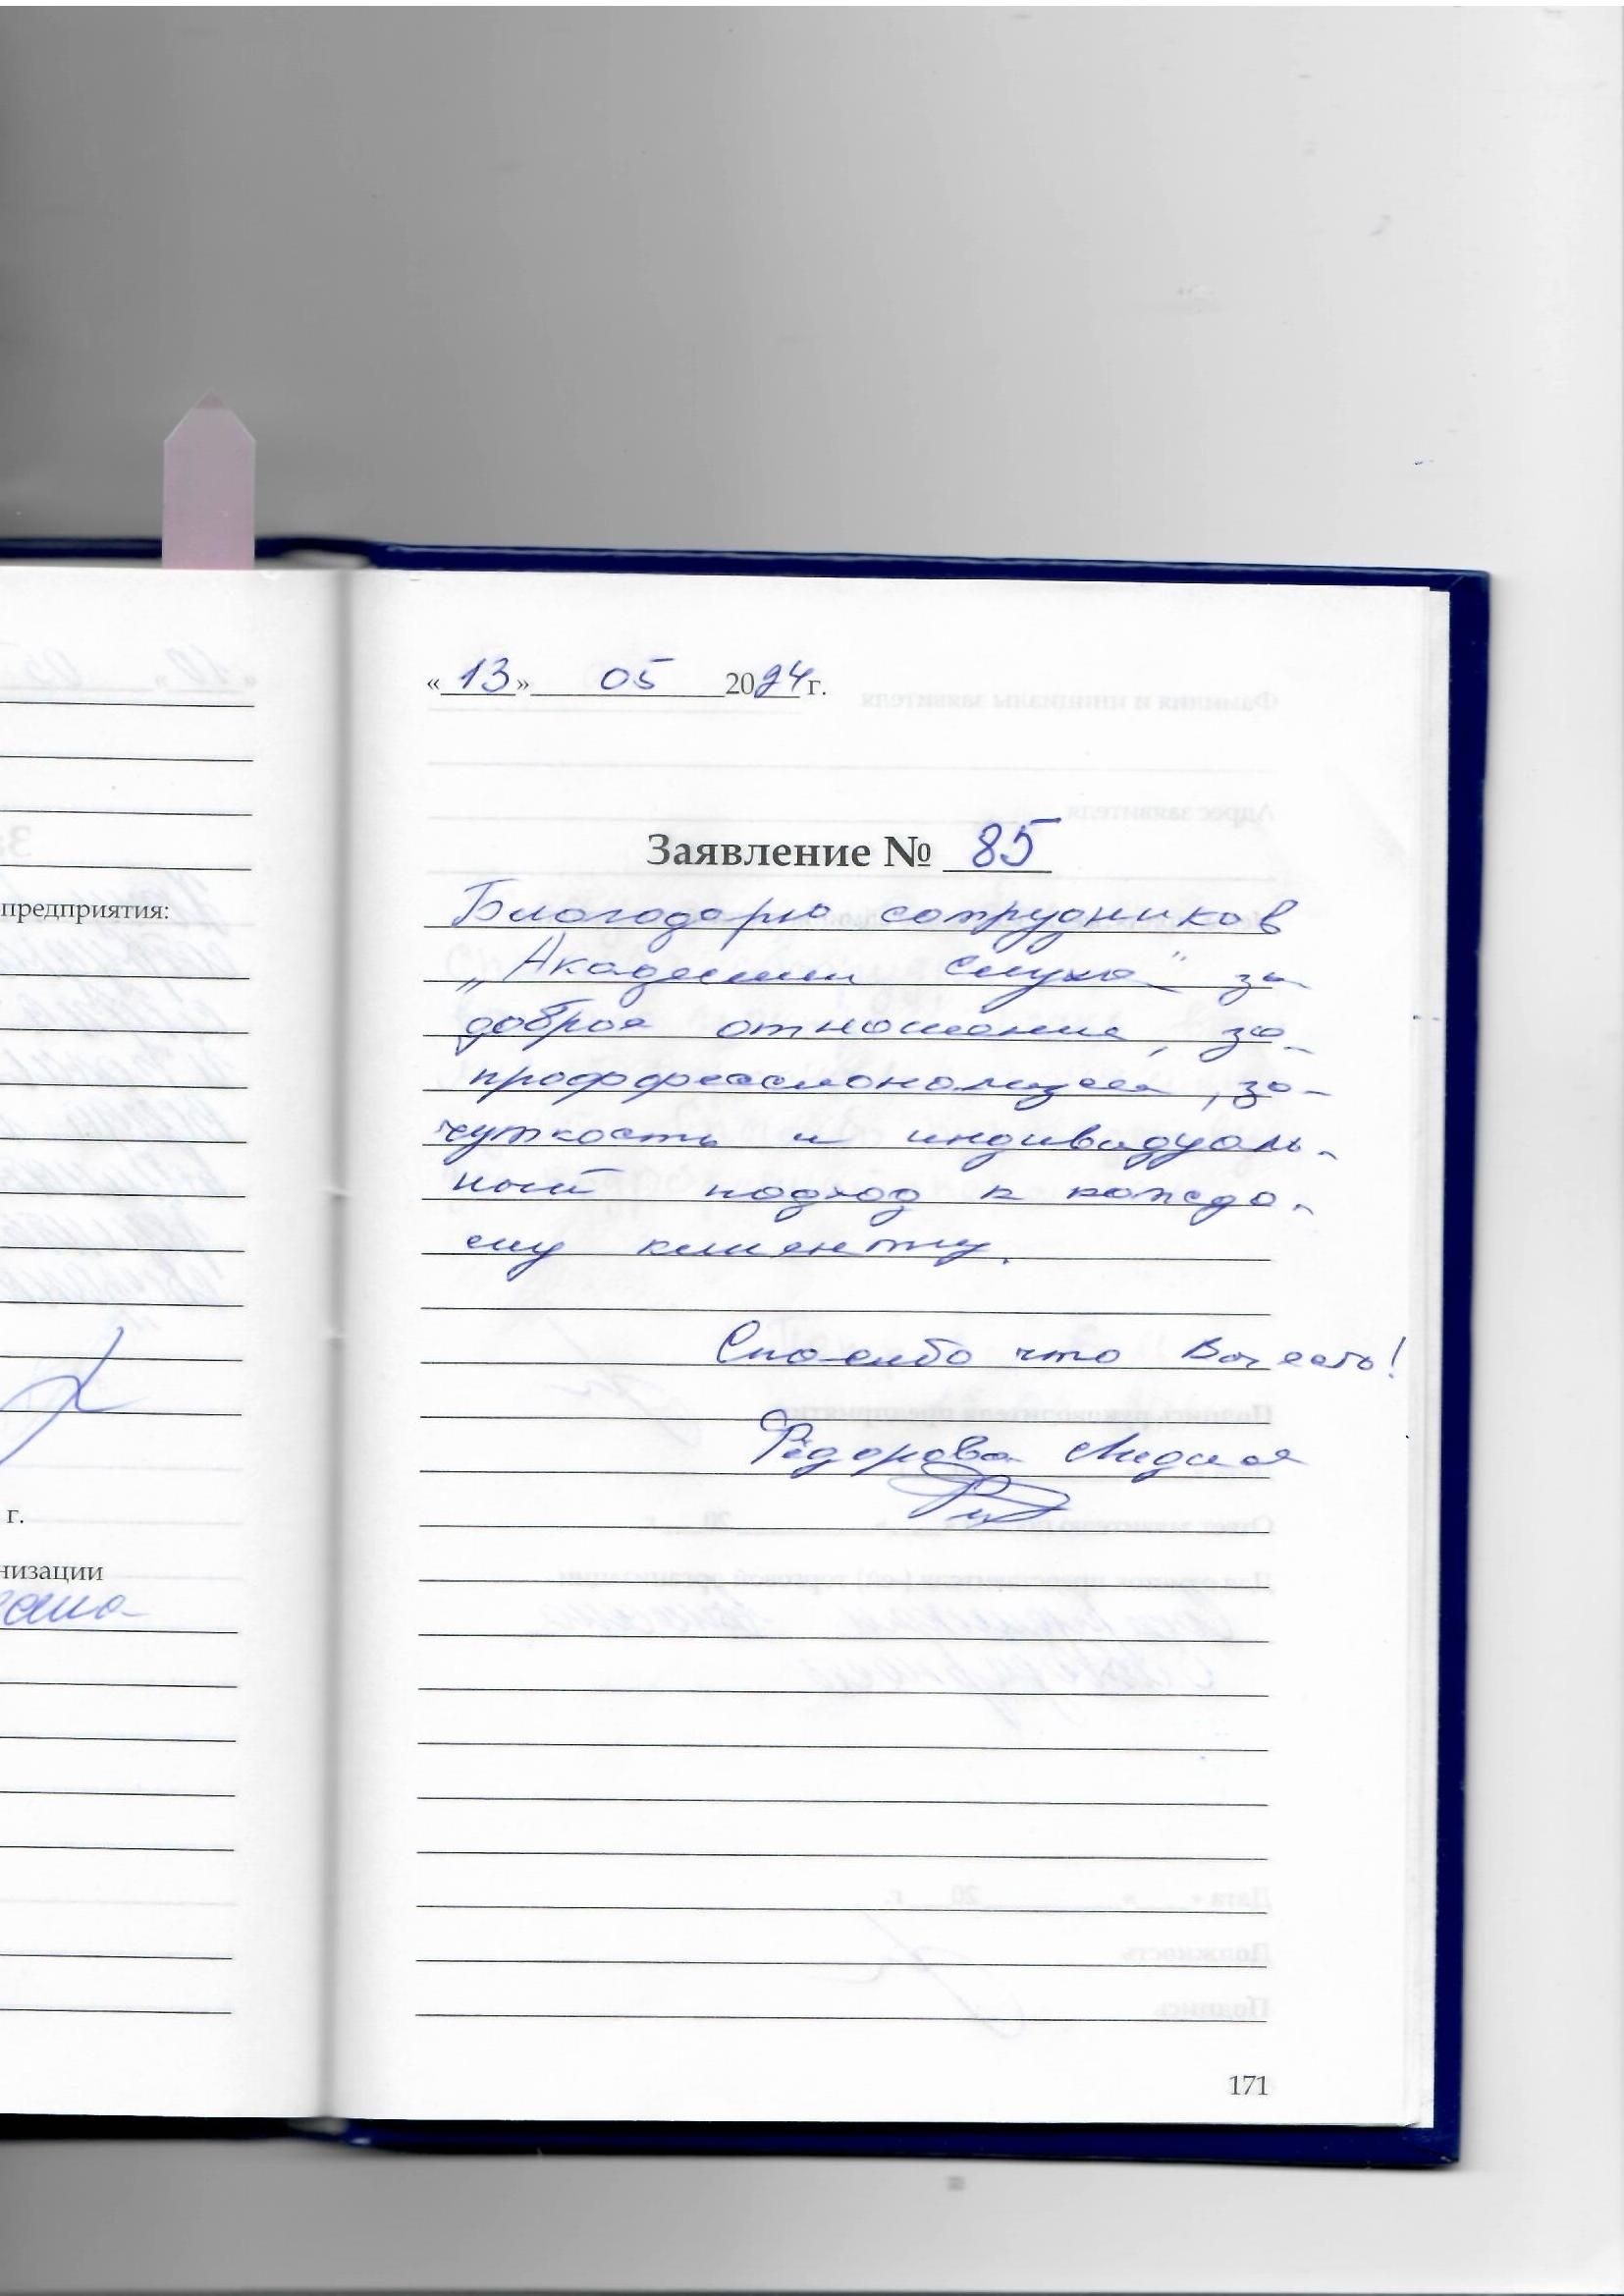 предприятия:
г.
низации
«13» 05 2024 г.
Заявление № 85
Благодарю сотрудников
„Академии Слуха" за
доброе отношение, за
профессионализм, за
чуткость и индивидуаль-
ный подход к каждо-
му клиенту.
Спасибо что Вы есть!
Фёдорова Лидия
171